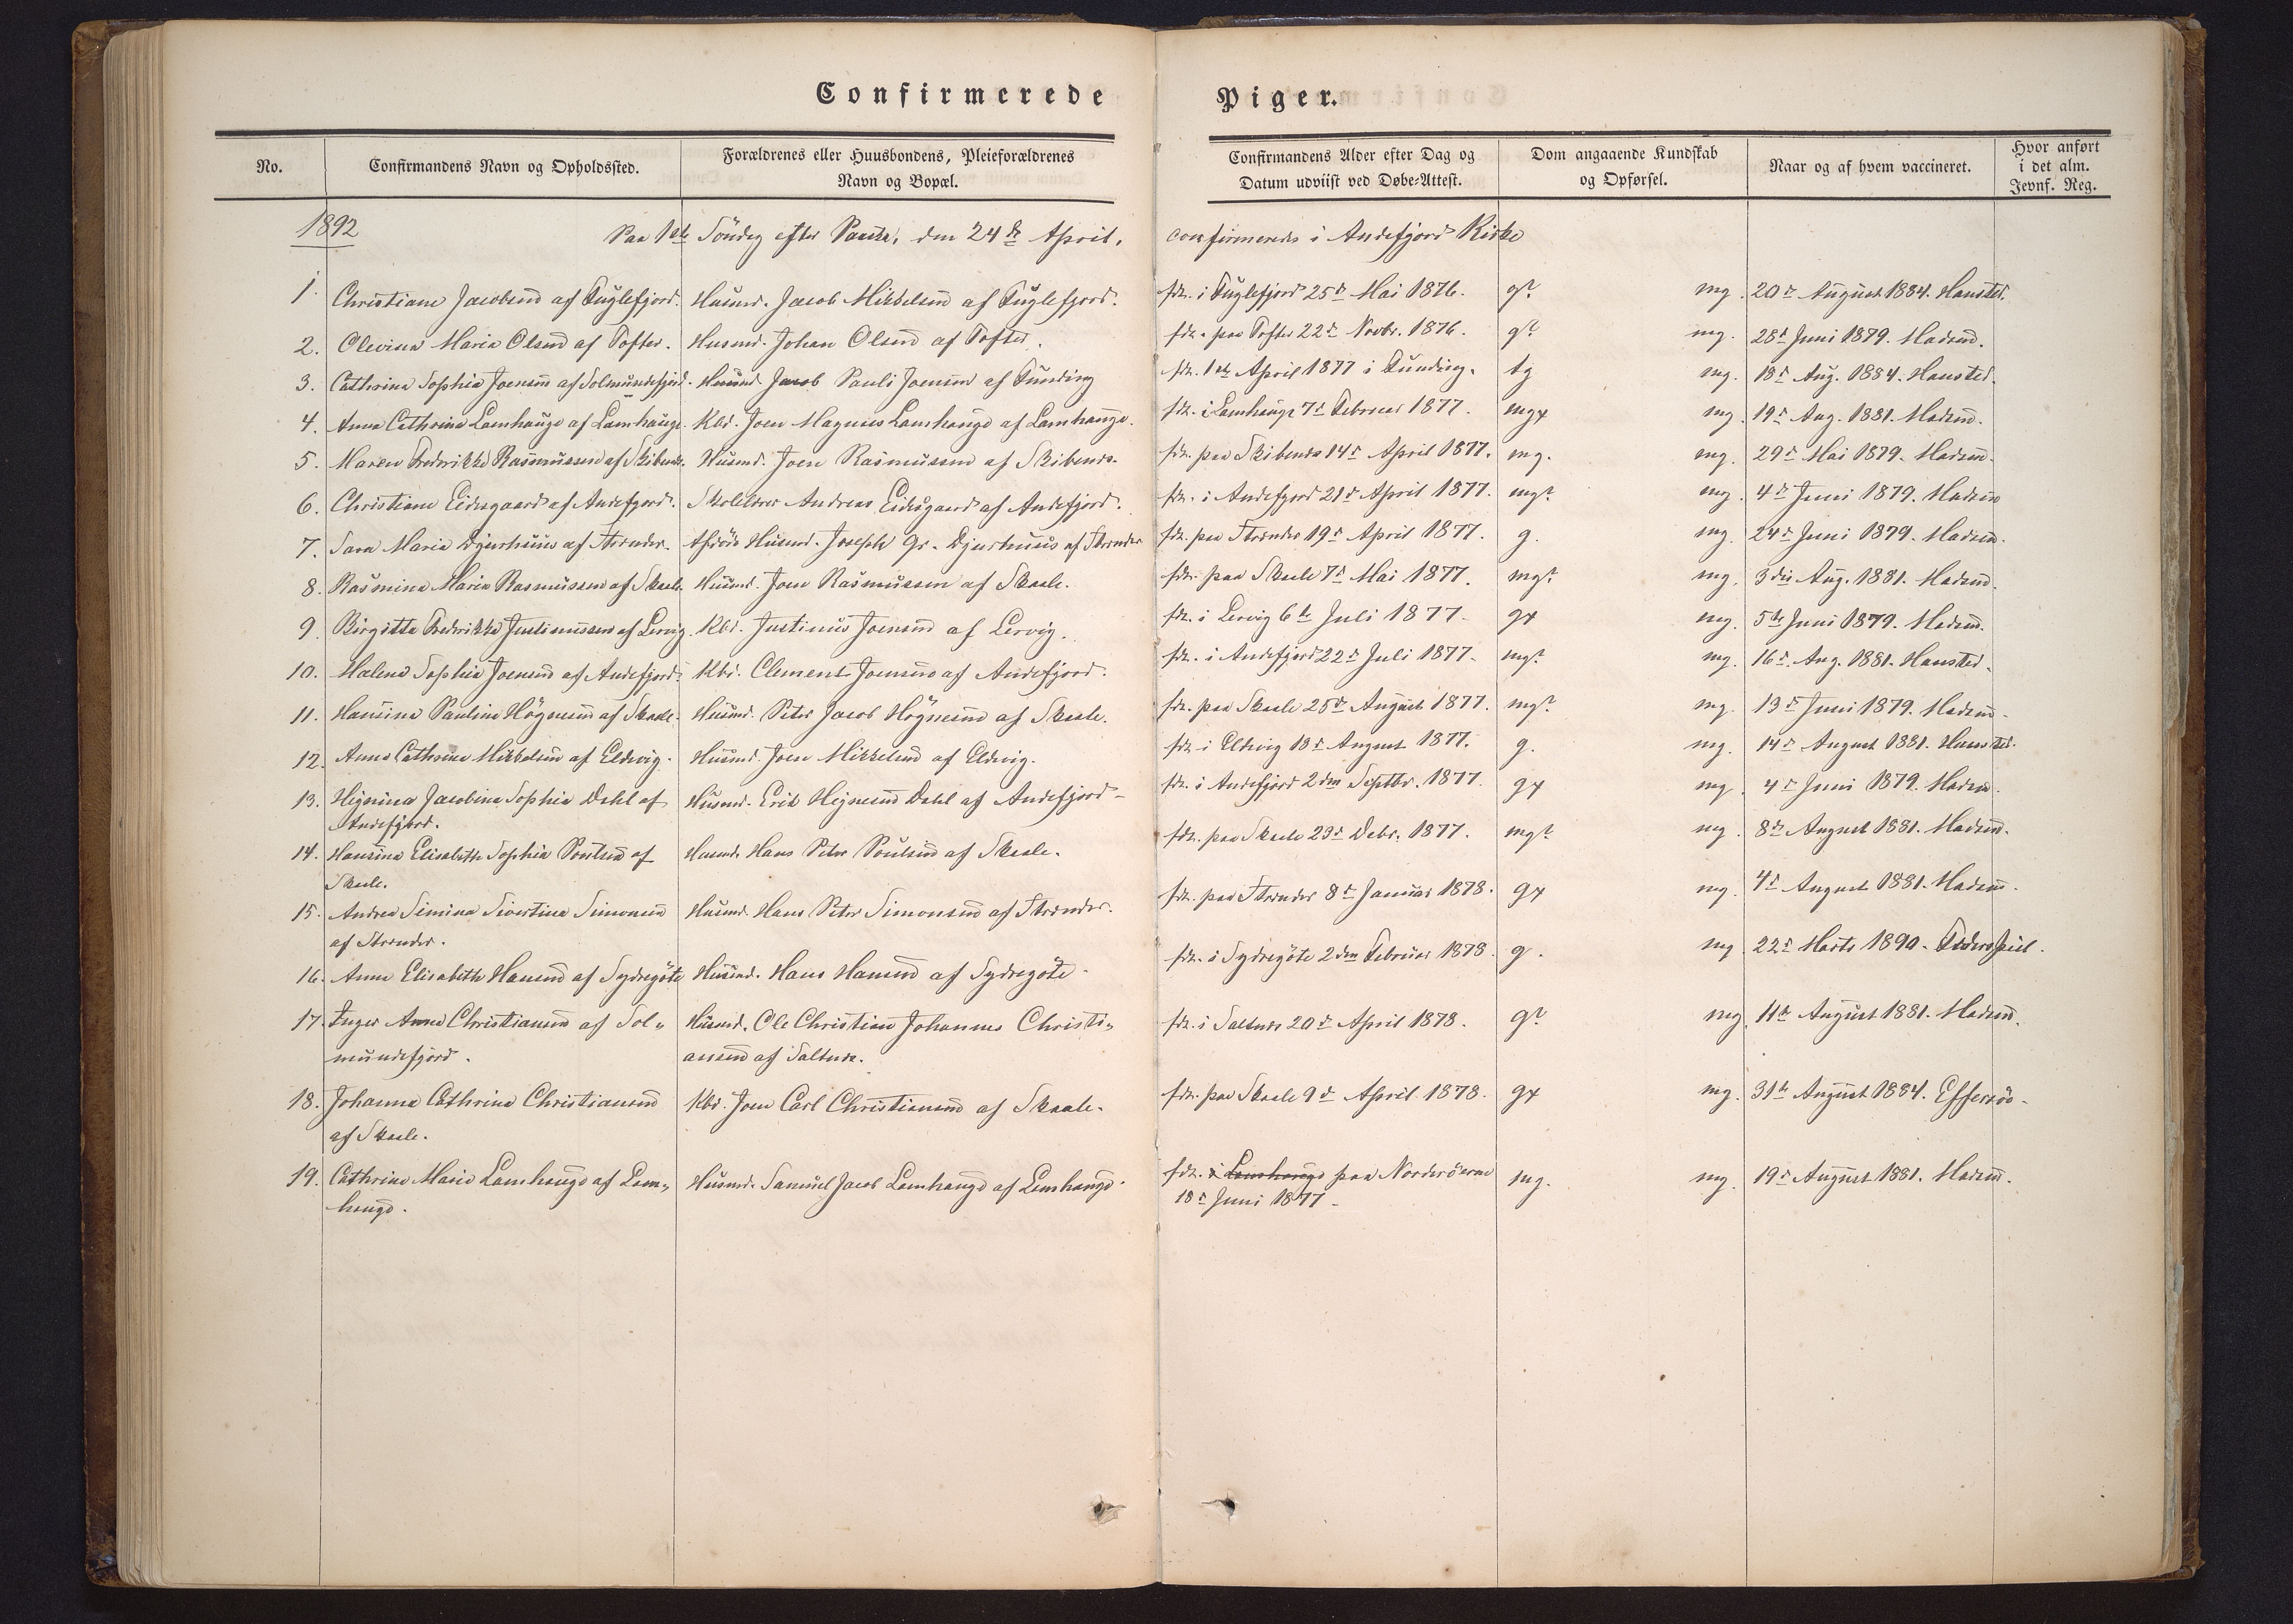 Confirmerede Piger.
No.
Confirmandens Navn og Opholdssted.
Forældrenes eller Huusbondens, Pleieforældrenes
Navn og Bopæl.
Confirmandens Alder efter Dag og
Datum udviist ved Døbe-Attest.
Dom angaaende Kundskab
og Opførsel.
Naar og af hvem vaccineret.
Hvor anført
i det alm.
Jevnf. Reg.
1892 Paa 1ste Söndag efter Paaske, den 24de April, confirmerede i Andefjord Kirke
1. Christiane Jacobsen af Fuglefjord. Husmd. Jacob Mikkelsen af Fuglefjord. fdt. i Fuglefjord 25de Mai 1876. g? mg. 20de August 1884. Hansted.
2. Olevina Maria Olsen af Tofter. Husmd. Johan Olsen af Tofter. fdt. paa Tofter 22de Novbr. 1876. g? mg. 28de Juni 1879. Madsen.
3. Cathrina Sophia Joensen af Solmundefjord. Husmd. Jacob Pauli Joensen af Funding fdt. 1ste April 1877 i Funding. tg mg. 18de Aug. 1884. Hansted.
4. Anna Cathrina Lamhauge af Lamhauge. Kbd. Joen Magnus Lamhauge af Lamhauge. fdt. i Lamhauge 7de Februar 1877. mgx mg. 19de Aug. 1881. Madsen.
5. Maren Fredrikke Rasmussen af Skibenes. Husmd. Joen Rasmussen af Skibenes. fdt. paa Skibenes 14de April 1877. mg. mg. 29de Mai 1879. Madsen.
6. Christiane Eidesgaard af Andefjord. Skolelærer Andreas Eidesgaard af Andefjord. fdt. i Andefjord 21de April 1877. mg? mg. 4de Juni 1879. Madsen
7. Sara Maria Djurhuus af Strender. Afdöde Husmd. Joseph Gr. Djurhuus af Strender fdt. paa Strender 19de April 1877. g. mg. 24de Juni 1879. Madsen.
8. Rasmina Maria Rasmussen af Skaale. Husmd. Joen Rasmussen af Skaale. fdt. paa Skaale 7de Mai 1877. mg? mg. 3die Aug. 1881. Madsen.
9. Birgitta Fredrikke Justinussen af Lervig. Kbd. Justinus Joensen af Lervig. fdt. i Lervig 6te Juli 1877. gx mg. 5te Juni 1879. Madsen.
10. Malene Sophia Joensen af Andefjord. Kbd. Clement Joensen af Andefjord. fdt. i Andefjord 22de Juli 1877. mg? mg. 16de Aug. 1881. Hansted.
11. Hansina Paulina Högnesen af Skaale. Husmd. Peter Jacob Högnesen af Skaale. fdt. paa Skaale 25de August 1877. mg? mg. 13de Juni 1879. Madsen.
12. Anna Cathrina Mikkelsen af Eldevig. Husmd. Joen Mikkelsen af Eldevig. fdt. i Eldevig 18de August 1877. g. mg. 14de August 1881. Hansted.
13. Heynina Jacobina Sophia Dahl af Husmd. Erik Heynesen Dahl af Andefjord fdt. i Andefjord 2den Septbr. 1877. gx mg. 4de Juni 1879. Madsen.
Andefjord.
14. Hansina Elisabeth Sophia Poulsen af Husmd. Hans Peter Poulsen af Skaale. fdt. paa Skaale 23de Debr. 1877. mg? mg. 8de August 1881. Madsen.
Skaale.
15. Andrea Simina Sivertina Simonsen Husmd. Hans Peter Simonsen af Strender. fdt. paa Strender 8de Januar 1878. gx mg. 4de August 1881. Madsen.
af Strender.
16. Anna Elisabeth Hansen af Sydregöte Husmd. Hans Hansen af Sydregöte. fdt. i Sydregöte 2den Februar 1878. g. mg. 22de Marts 1890. Federspiel.
17. Inger Anna Christiansen af Sol- Husmd. Ole Christian Johannes Christi- fdt. i Saltnes 20de April 1878. g? mg. 11te August 1881. Madsen.
mundefjord. ansen af Saltnes.
18. Johanna Cathrina Christiansen Kbd. Joen Carl Christiansen af Skaale. fdt. paa Skaale 9de April 1878. gx mg. 31te August 1884. Effersöe.
af Skaale.
19. Cathrina Maria Lamhauge af Lam- Husmd. Samuel Jacob Lamhauge af Lamhauge. fdt. i Lamhauge paa Norderöerne mg. mg. 19de August 1881. Madsen.
hauge. 18de Juni 1877.